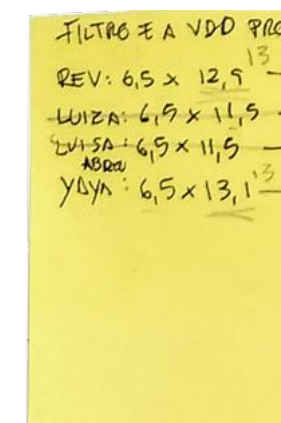 FILTRO E A VDO PRO
13
REV: 6,5 x 12,9 -
LUIZA: 6,5 x 11,5 -
LUISA: 6,5 x 11,5 -
ABREU
YAYA: 6,5 x 13,1 13 -